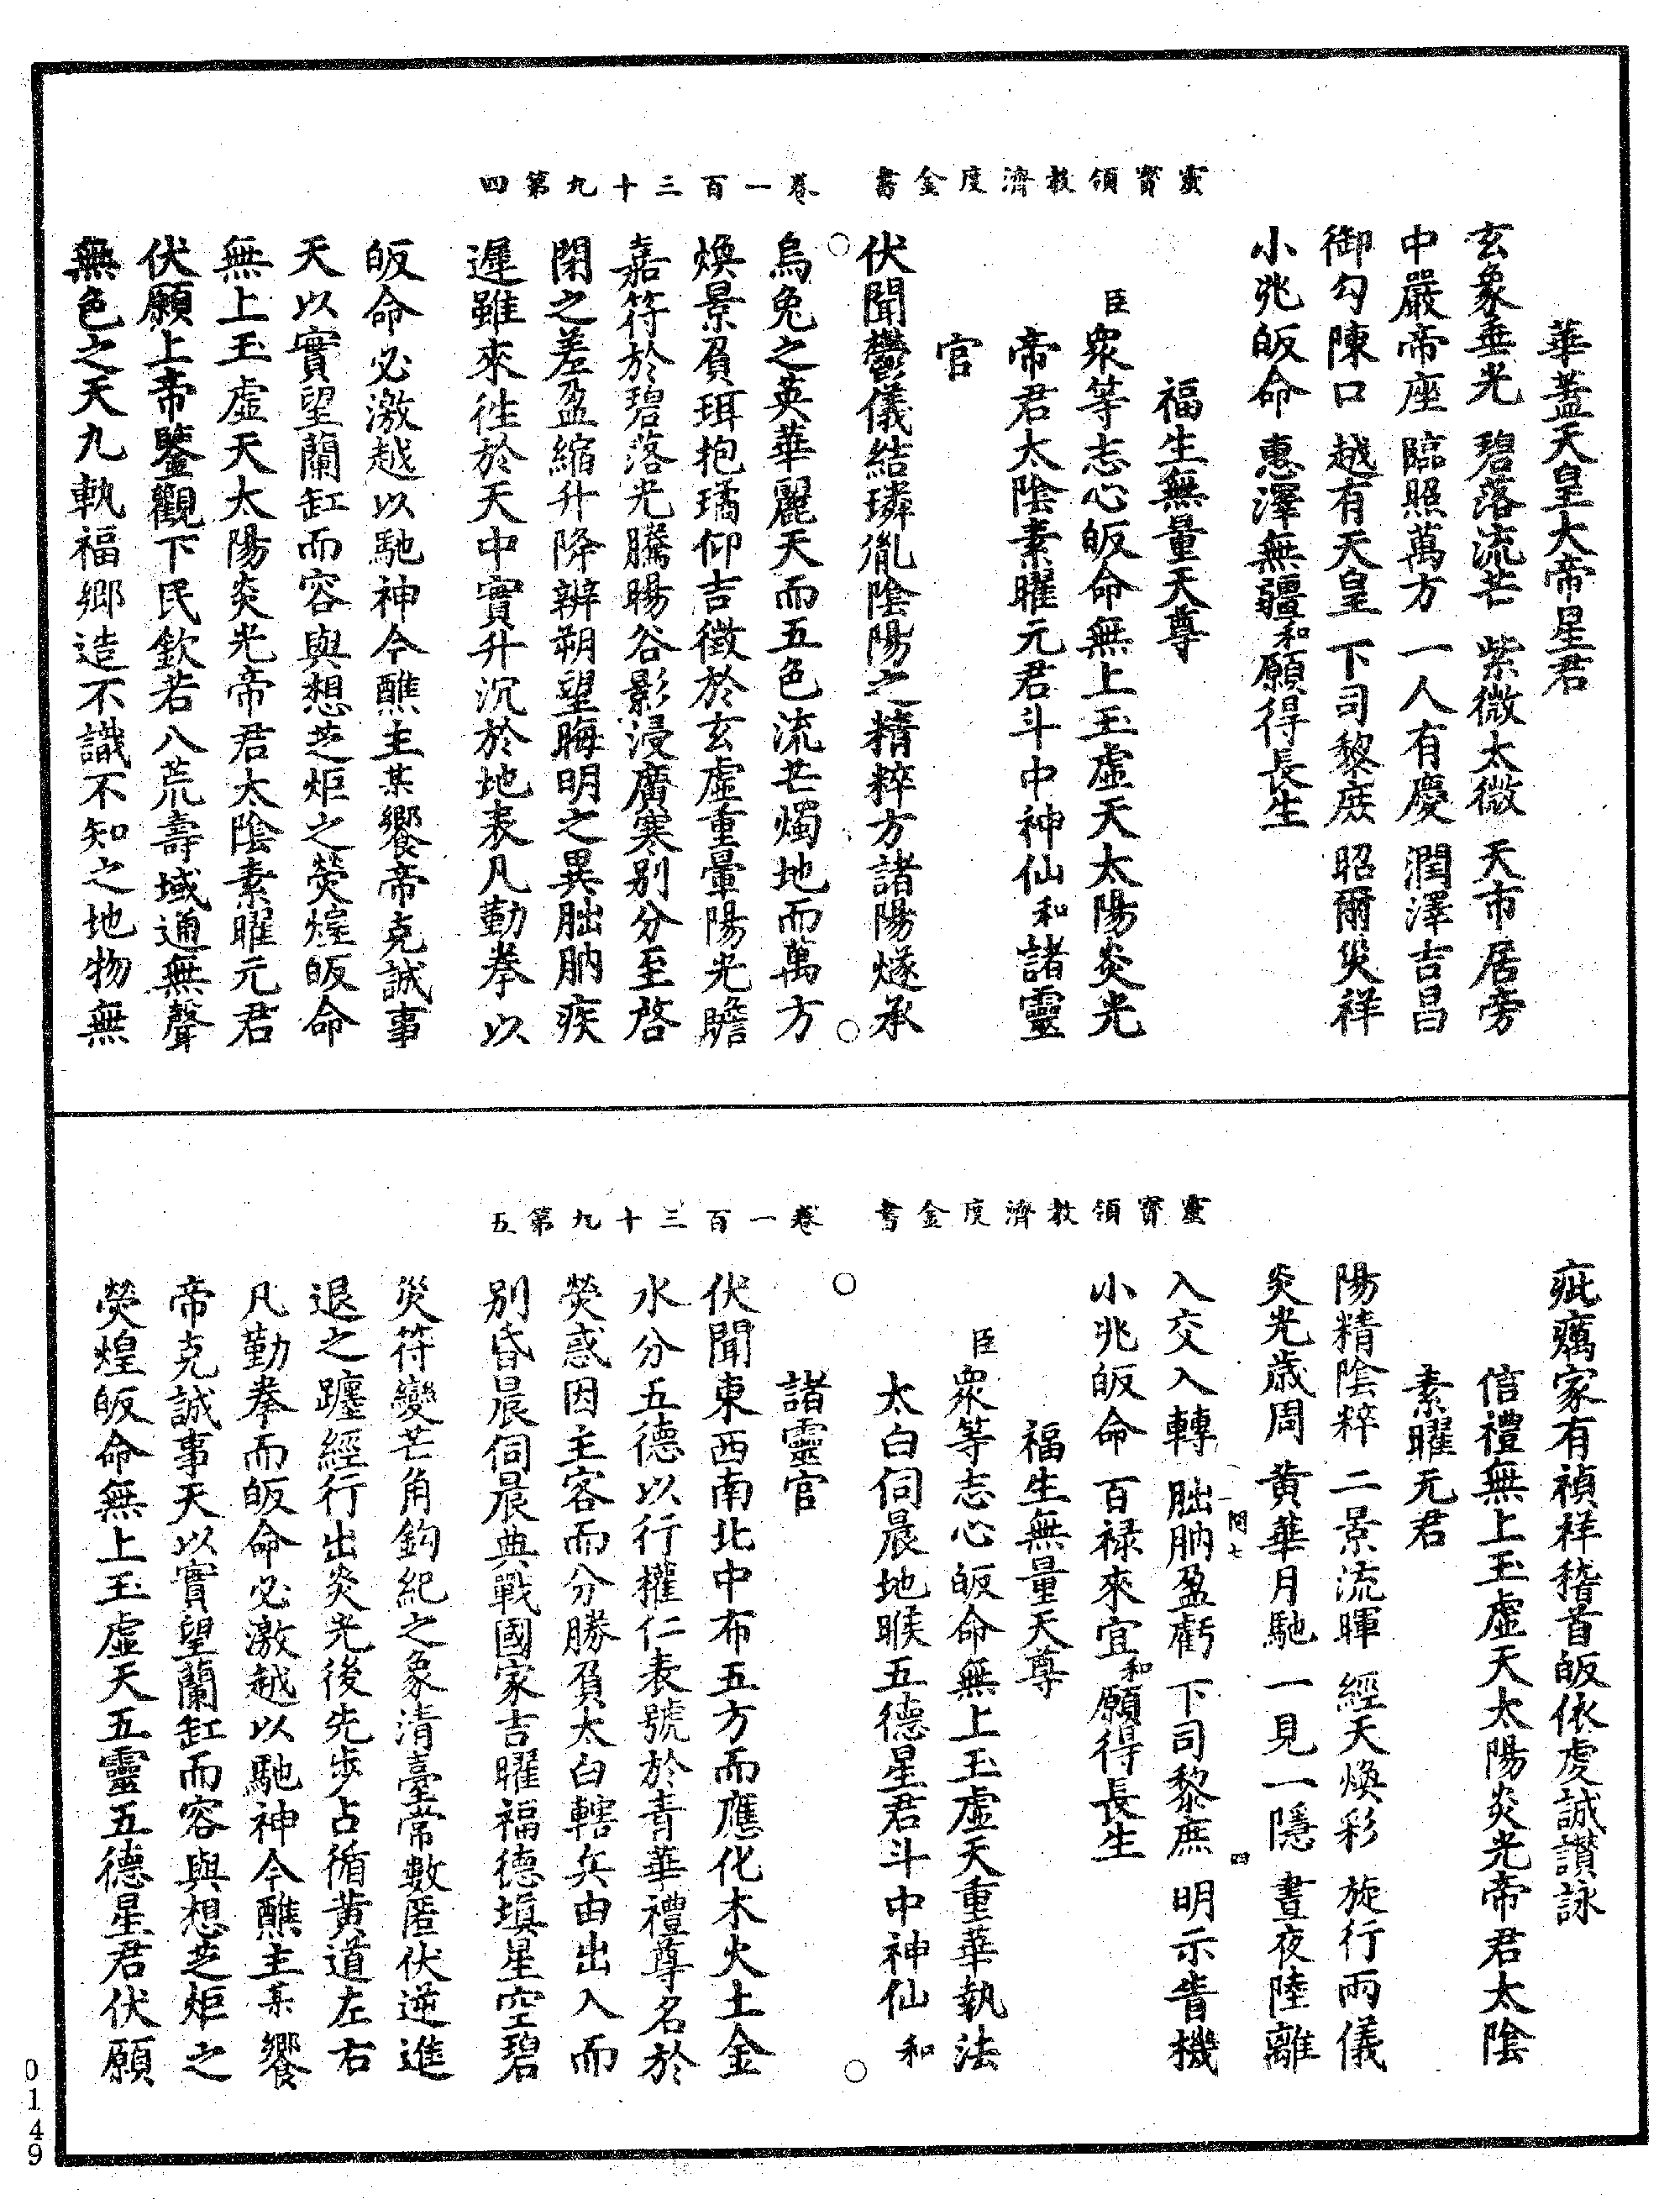 靈寶領教濟度金書 卷一百三十九第四
華蓋天皇大帝星君
玄象垂光 碧落流芒 紫微太微 天市居旁
中嚴帝座 臨照萬方 一人有慶 潤澤吉昌
御勾陳口 越有天皇 下司黎庶 昭爾災祥
小兆皈命 惠澤無疆和願得長生
福生無量天尊
臣眾等志心皈命無上玉虛天太陽炎光
帝君太陰素曜元君斗中神仙和諸靈
官
伏聞鬱儀結璘胤陰陽之精粹方諸陽燧承
烏兔之英華麗天而五色流芒燭地而萬方
煥景負珥抱璚仰吉徵於玄虛重暈陽光瞻
嘉符於碧落光騰暘谷影浸廣寒别分至啓
閉之差盈縮升降辨朔望晦明之異朏朒疾
遲雖來徃於天中實升沉於地表凡勤拳以
皈命必激越以馳神今醮主某饗帝克誠事
天以實望蘭缸而容與想芝炬之熒煌皈命
無上玉虛天太陽炎光帝君太陰素曜元君
伏願上帝鑒觀下民欽若八荒壽域通無聲
無色之天九軌福鄉造不識不知之地物無
靈寶領教濟度金書 卷一百三十九第五
疵癘家有禎祥稽首皈依虔誠讃詠
信禮無上玉虛天太陽炎光帝君太陰
素曜元君
陽精陰粹 二景流暉 經天煥彩 旋行兩儀
炎光歲周 黄華月馳 一見一隱 晝夜陸離
一閏七 四
入交入轉 朏朒盈虧 下司黎庶 明示眚機
小兆皈命 百禄來宜和願得長生
福生無量天尊
臣眾等志心皈命無上玉虛天重華執法
太白伺晨地睺五德星君斗中神仙和
諸靈官
伏聞東西南北中布五方而應化木火土金
水分五德以行權仁表號於青華禮尊名於
熒惑因主客而分勝負太白轄兵由出入而
别昏晨伺晨典戰國家吉曜福德填星空碧
災符變芒角鈎紀之象清臺常數匿伏逆進
退之躔經行出炎光後先步占循黄道左右
凡勤拳而皈命必激越以馳神今醮主某饗
帝克誠事天以實望蘭缸而容與想芝炬之
熒煌皈命無上玉虛天五靈五德星君伏願
0149